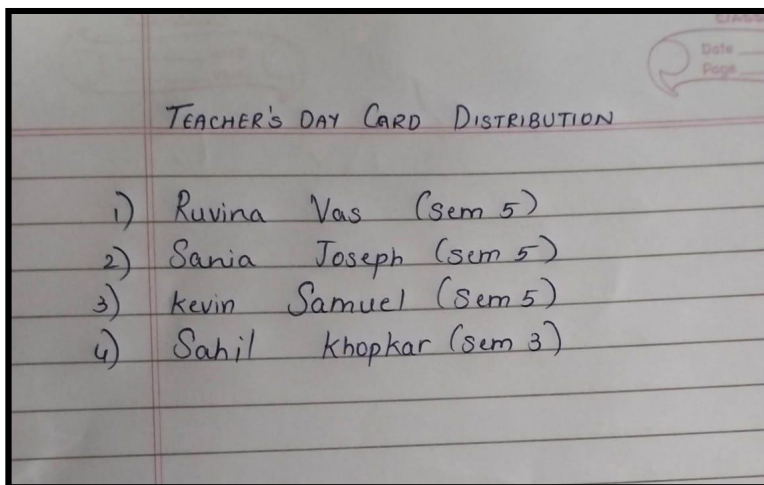 CLASS
Date
Page
TEACHER'S DAY CARD DISTRIBUTION
1) Ruvina Vas (sem 5)
2) Sania Joseph (sem 5)
3) kevin Samuel (sem 5)
4) Sahil Khopkar (sem 3)